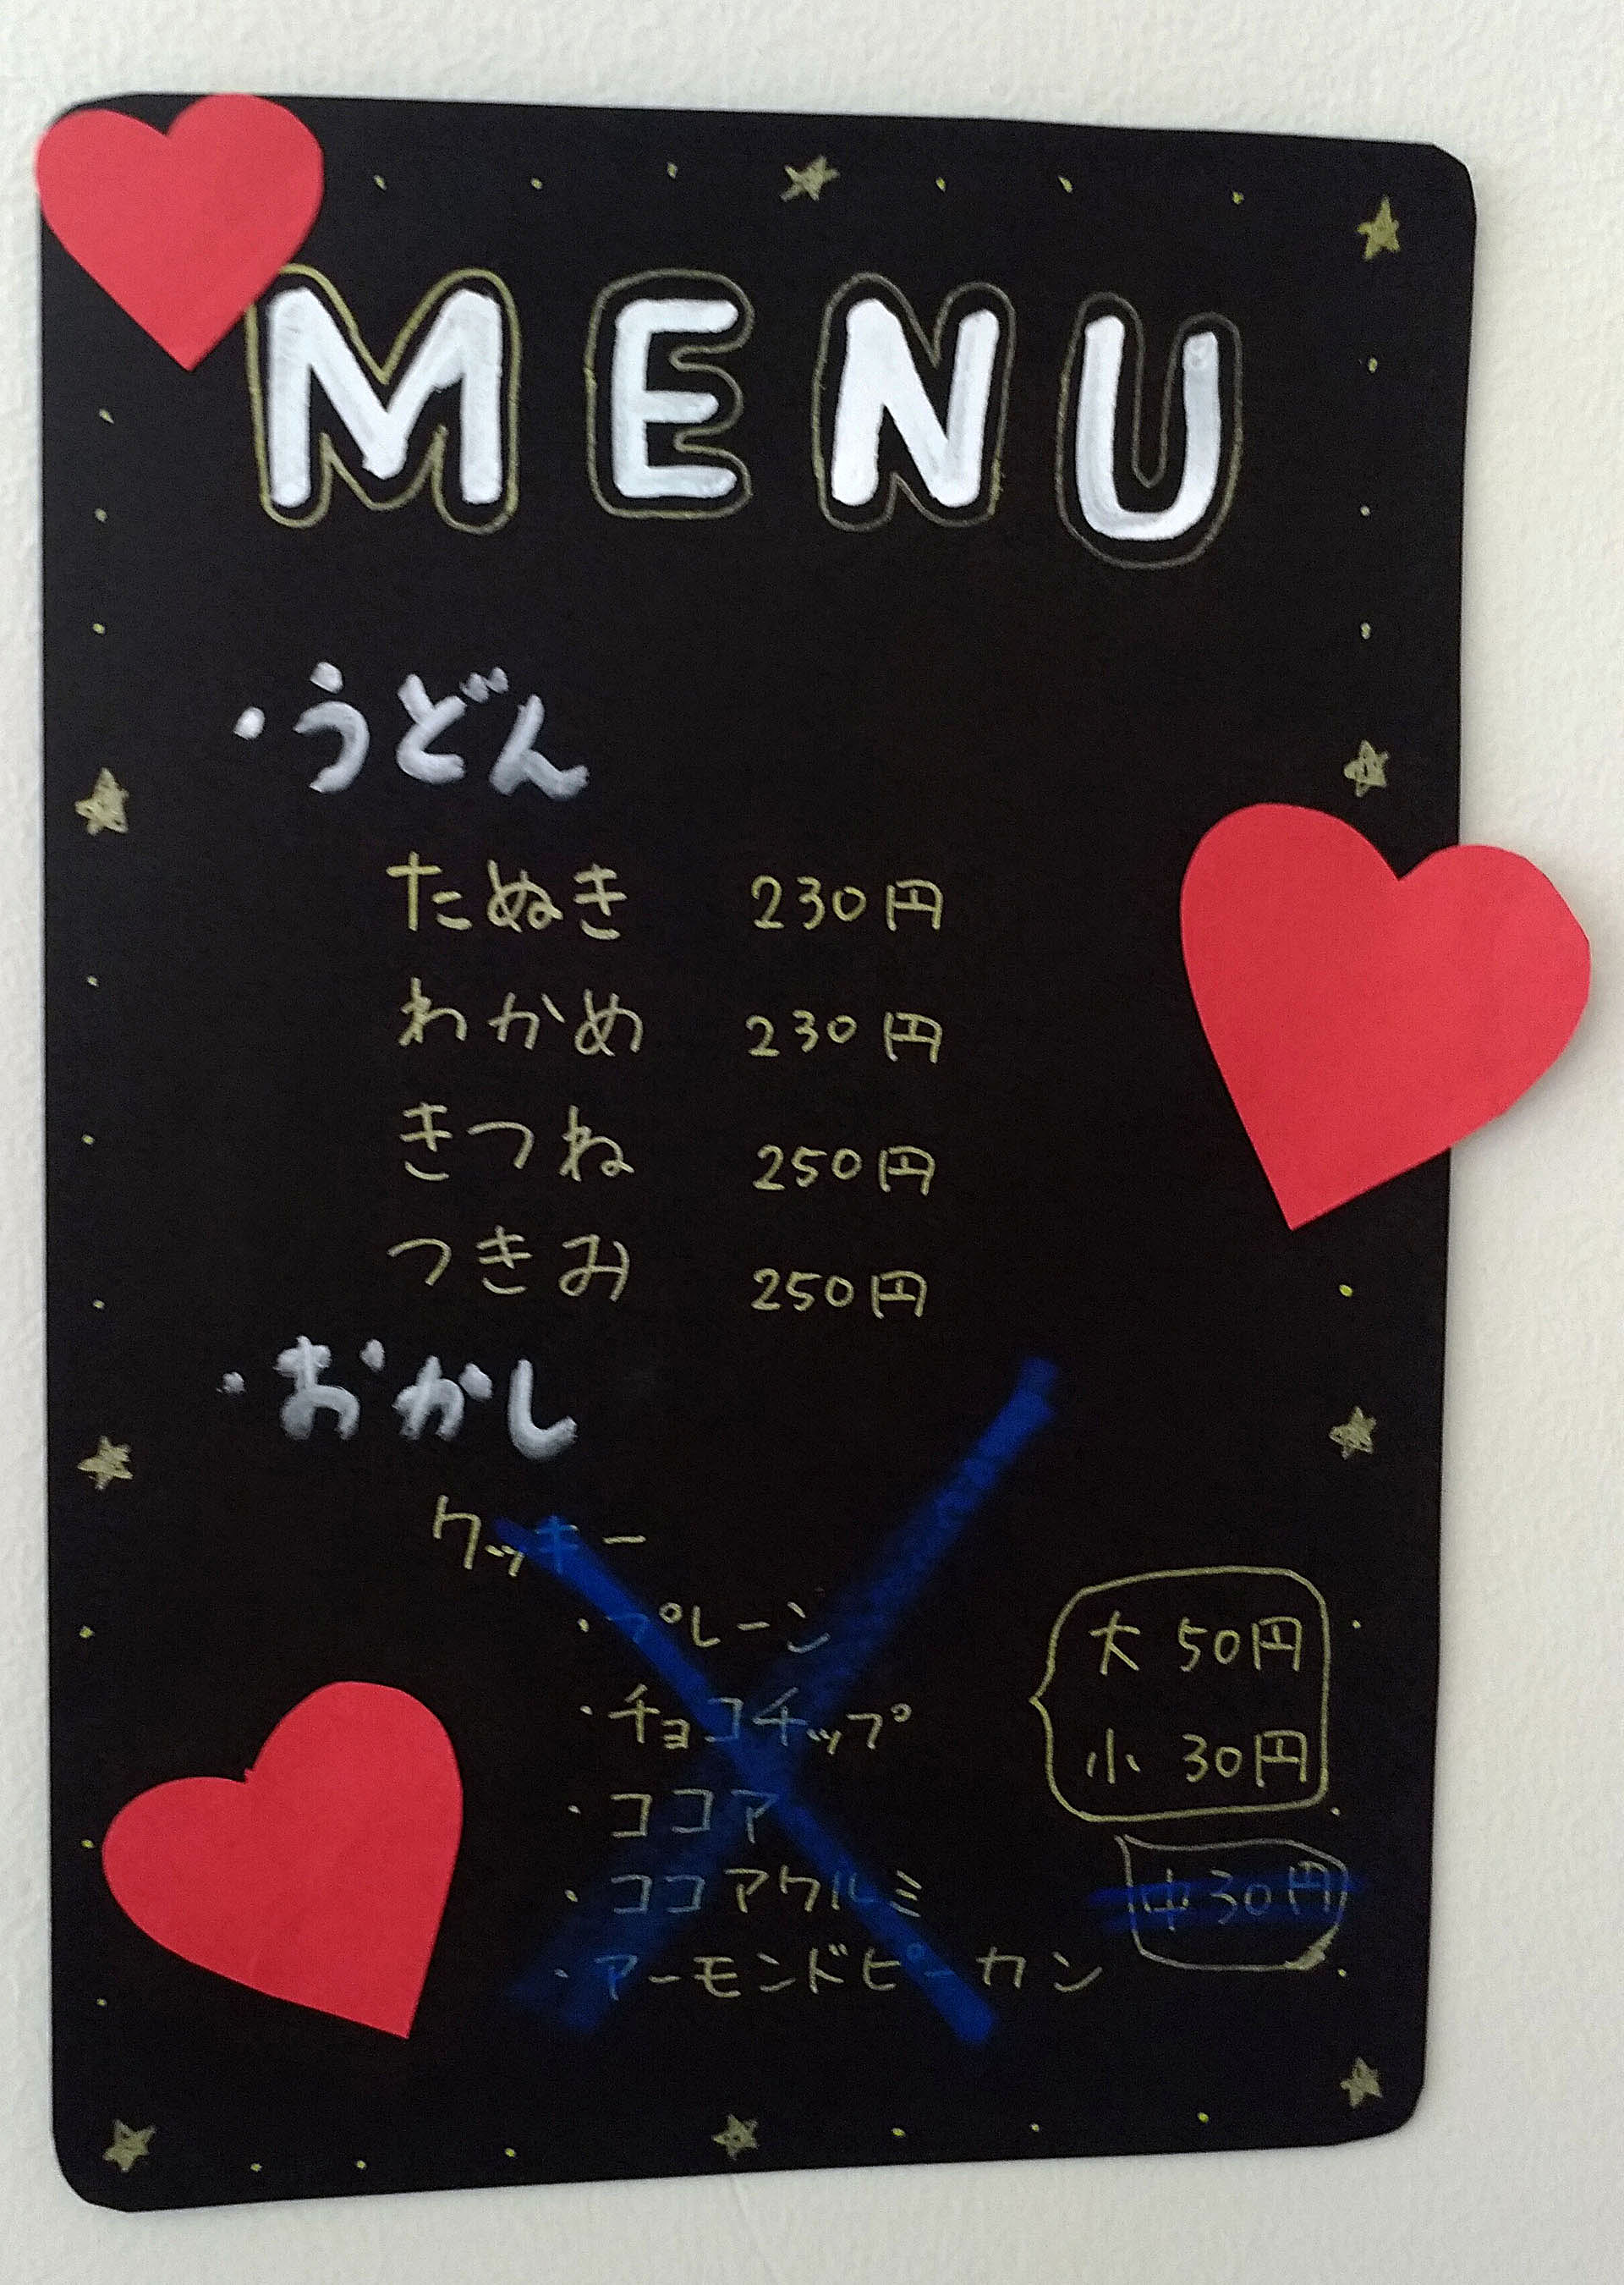 MENU
・うどん
たぬき 230円
わかめ 230円
きつね 250円
つきみ 250円
・おかし
クッキー
・プレーン
大 50円
・チョコチップ
小 30円
・ココア
・ココアクルミ
中30円
・アーモンドピーカン